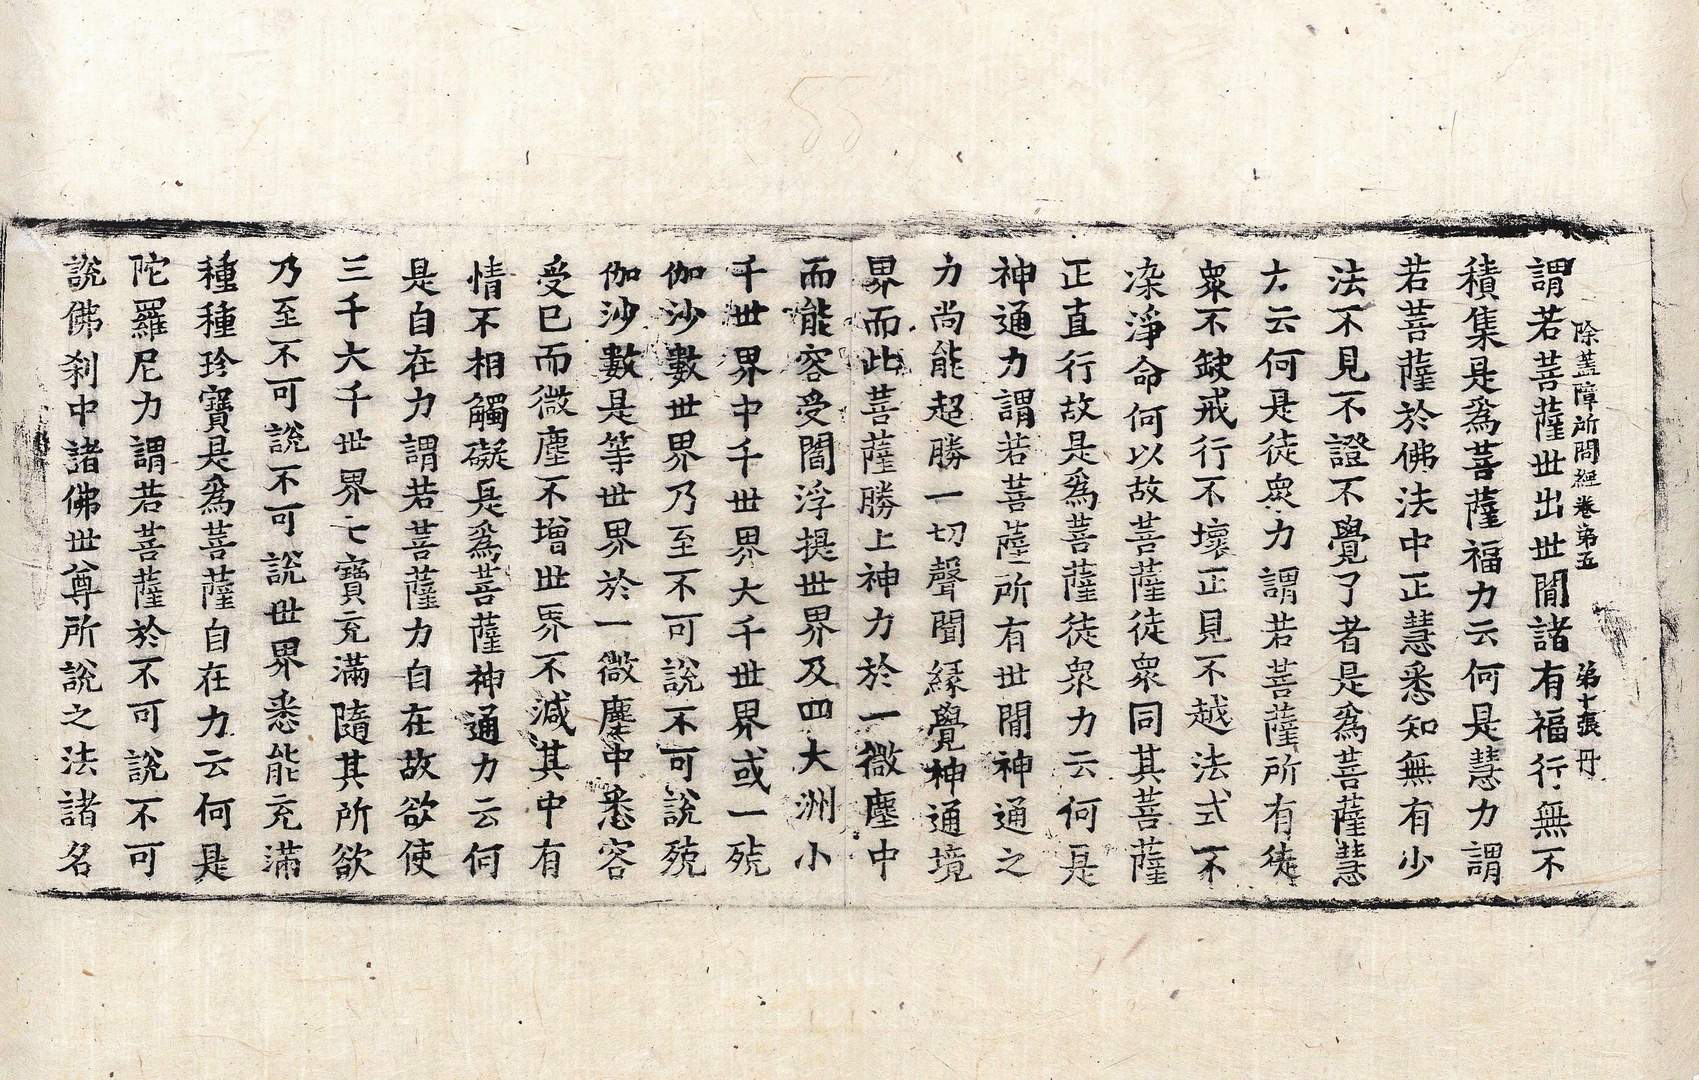 除蓋障所問經卷第五　第十張　冊
謂若菩薩世出世閒諸有福行無不
積集是爲菩薩福力云何是慧力謂
若菩薩於佛法中正慧悉知無有少
法不見不證不覺了者是爲菩薩慧
力云何是徒衆力謂若菩薩所有徒
衆不缺戒行不壞正見不越法式不
染淨命何以故菩薩徒衆同其菩薩
正直行故是爲菩薩徒衆力云何是
神通力謂若菩薩所有世閒神通之
力尚能超勝一切聲聞緣覺神通境
界而此菩薩勝上神力於一微塵中
而能容受閻浮提世界及四大洲小
千世界中千世界大千世界或一殑
伽沙數世界乃至不可說不可說殑
伽沙數是等世界於一微塵中悉容
受已而微塵不增世界不減其中有
情不相觸礙是爲菩薩神通力云何
是自在力謂若菩薩力自在故欲使
三千大千世界七寶充滿隨其所欲
乃至不可說不可說世界悉能充滿
種種珍寶是爲菩薩自在力云何是
陀羅尼力謂若菩薩於不可說不可
說佛刹中諸佛世尊所說之法諸名